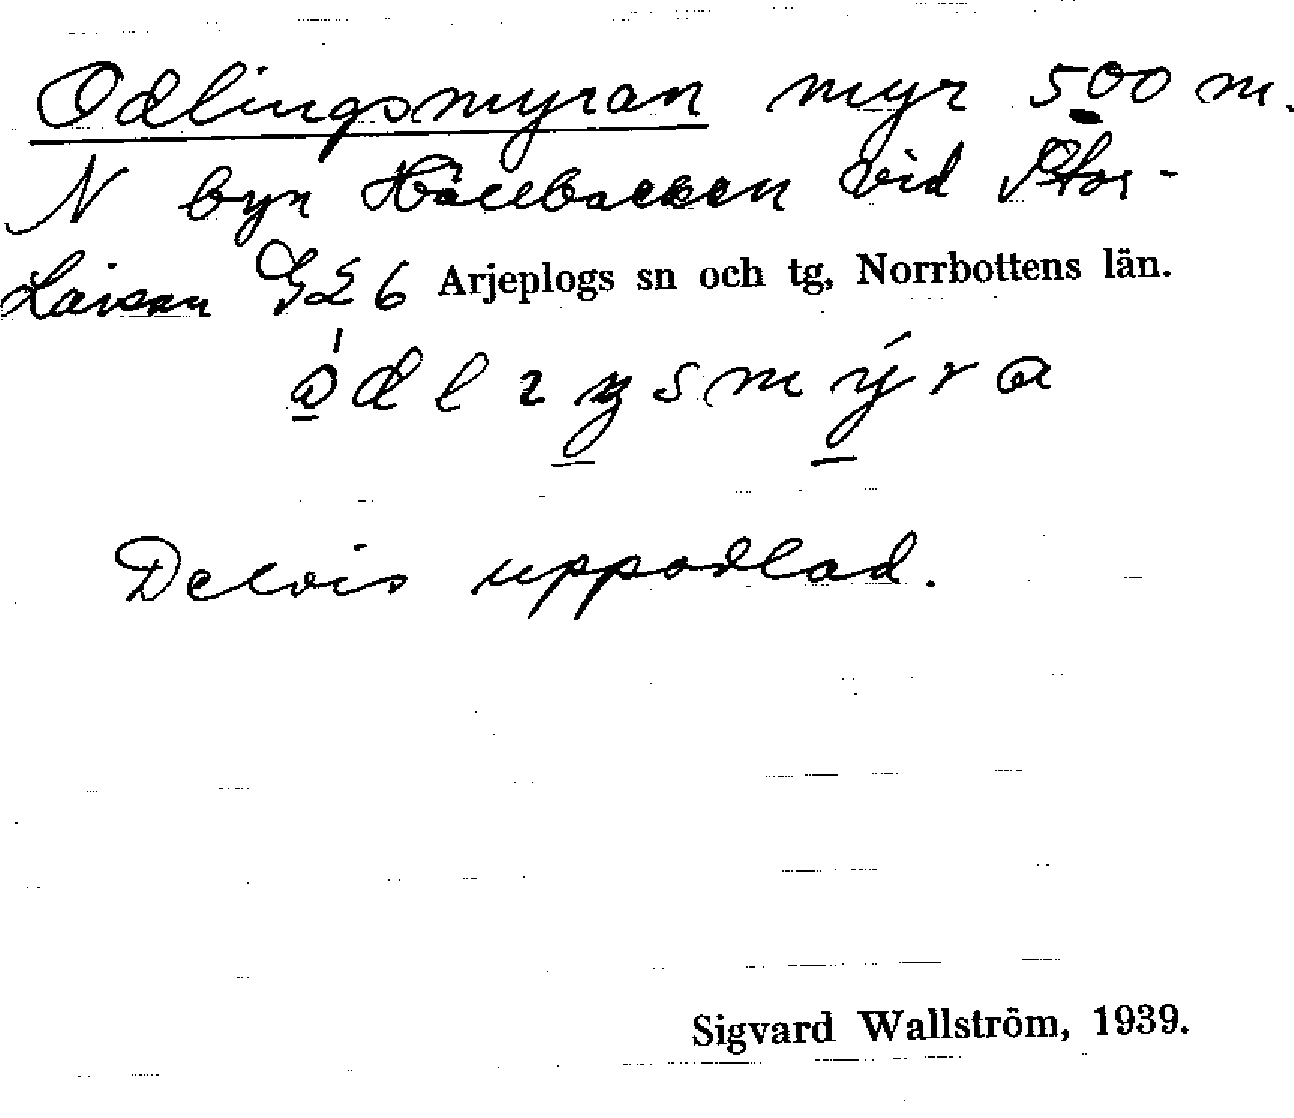 Odlingsmyran myr 500 m.
N byn Hällbacken vid Stor-
Laisan G26 Arjeplogs sn och tg, Norrbottens län.
Delvis uppodlad.
Sigvard Wallström, 1939.